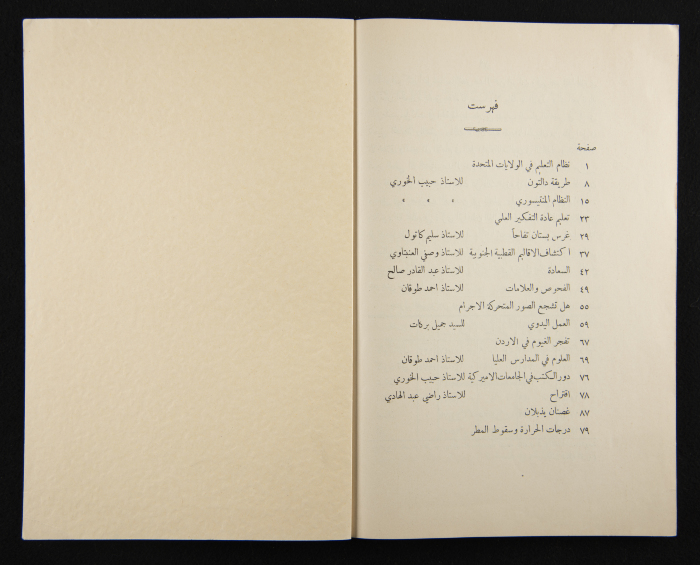 فهرست
صفحة
١ نظام التعليم في الولايات المتحدة
٨ طريقة دالتون للاستاذ حبيب الخوري
١٥ النظام المنتيسوري » » »
٢٣ تعليم عادة التفكير العلمي
٢٩ غرس بستان تفاحاً للاستاذ سليم كاتول
٣٧ اكتشاف الاقاليم القطبية الجنوبية للاستاذ وصفي العنبتاوي
٤٢ السعادة للاستاذ عبد القادر صالح
٤٩ الفحوص والعلامات للاستاذ احمد طوقان
٥٥ هل تشجع الصور المتحركة الاجرام
٥٩ العمل اليدوي للسيد جميل بركات
٦٧ تفجر الغيوم في الاردن
٦٩ العلوم في المدارس العليا للاستاذ احمد طوقان
٧٦ دور الكتب في الجامعات الاميركية للاستاذ حبيب الخوري
٧٨ اقتراح للاستاذ راضي عبد الهادي
٨٧ غصنان يذبلان
٧٩ درجات الحرارة وسقوط المطر